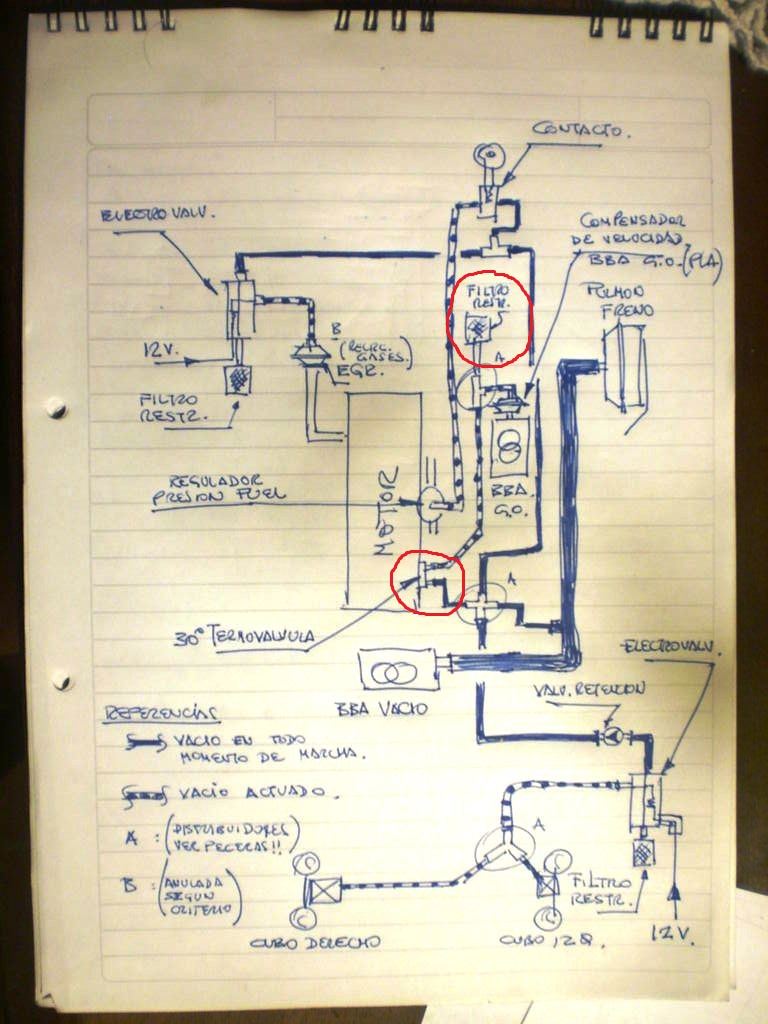 CONTACTO.
ELECTROVALV.
COMPENSADOR
DE VELOCIDAD
BBA G.O. (PLA)
FILTRO
RESTR.
PULMON
FRENO
12V.
B
(RECIRC.
GASES.)
EGR.
A
FILTRO
RESTR.
REGULADOR
PRESION FUEL
MOTOR
BBA
G.O.
A
30° TERMOVALVULA
ELECTROVALV.
BBA VACIO
VALV. RETENCION
REFERENCIAS
VACIO EN TODO
MOMENTO DE MARCHA.
VACIO ACTUADO.
A : (DISTRIBUIDORES
VER PECERAS!!)
A
B : (ANULADA
SEGUN
CRITERIO)
FILTRO
RESTR.
12V.
CUBO DERECHO
CUBO IZQ.